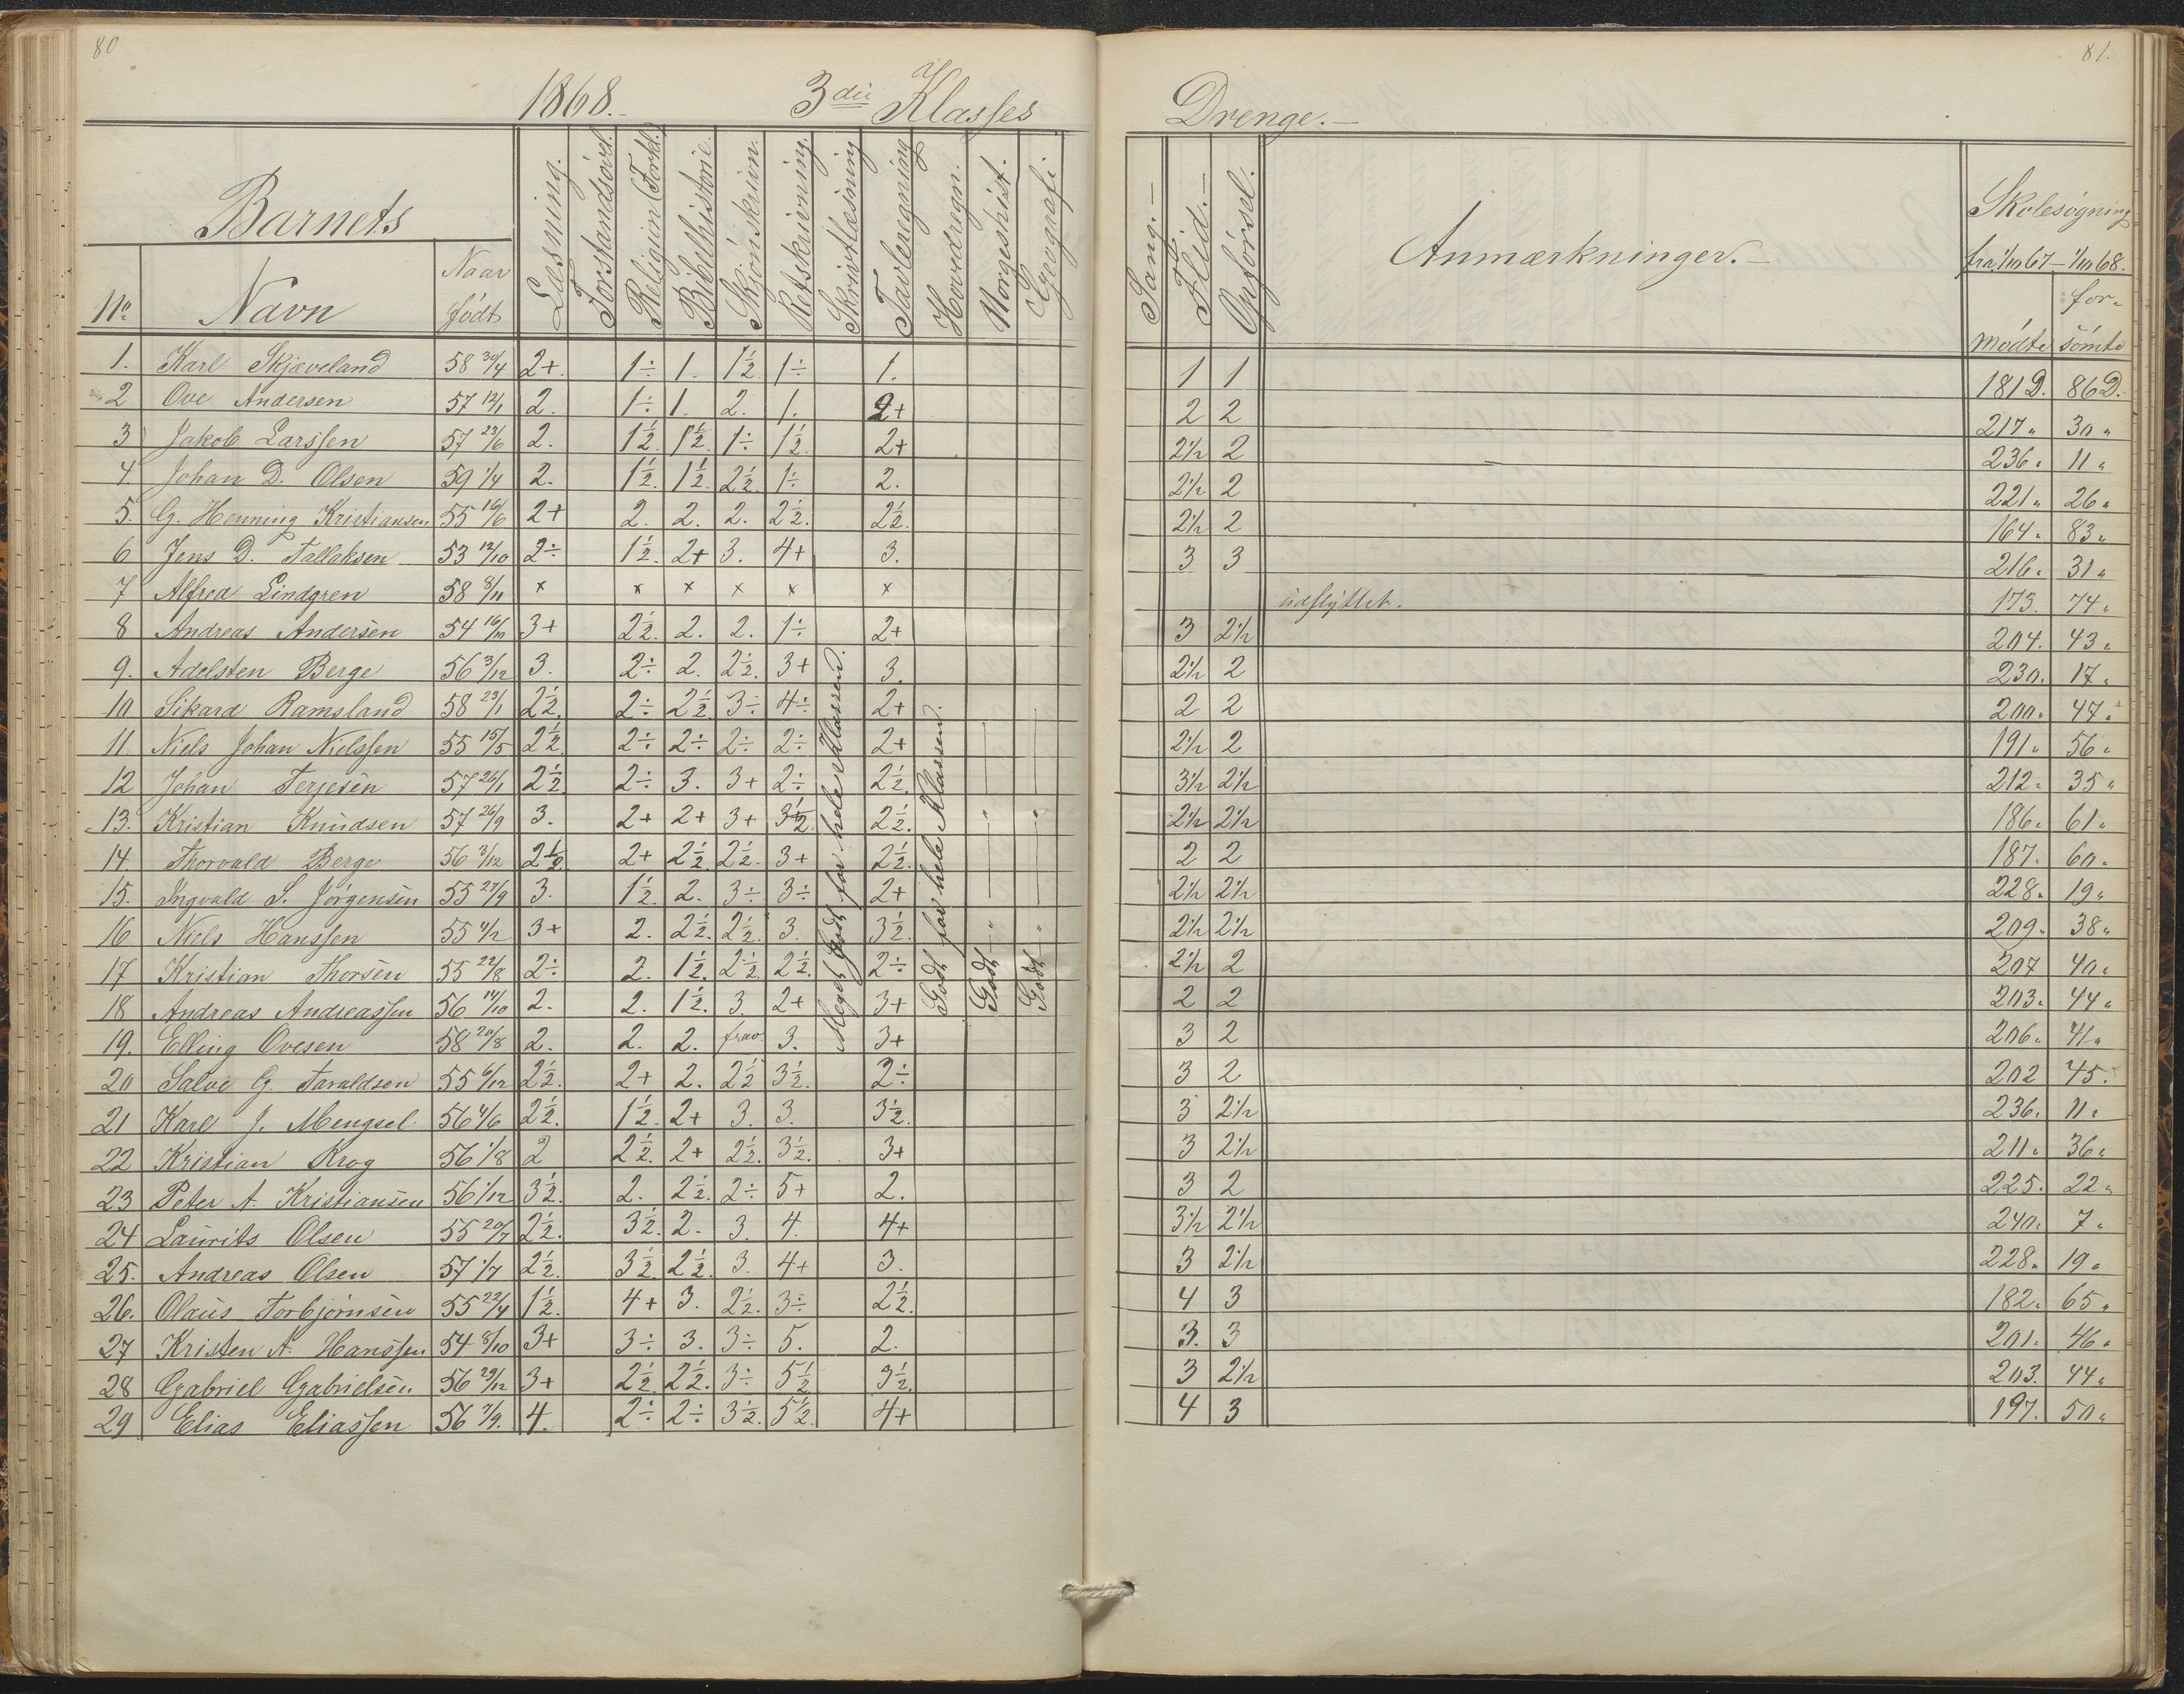 80
81.
1868.- 3die Klasses
Drenge.-
Barnets
No Navn Naar født Læsning. Forstandsøvel. Religion (Forkl.) Bibelhistorie. Skjønskrivn. Retskrivning. Skrivtlæsning Tavleregning Hovedregn. Norgeshist. Geografi
Sang.- Flid.- Opførsel. Anmærkninger.- Skolesøgning fra 1/10 67 - 1/10 68. mødte forsømte
1. Karl Skjæveland 58 30/4 2+ 1÷ 1. 1½ 1÷ 1. 1 1 181 D. 86 D.
2 Ove Andersen 57 12/1 2. 1÷ 1. 2. 1. 2+ 2 2 217 " 30 "
3 Jakob Larssen 57 23/6 2. 1½ 1½ 1÷ 1½ 2+ 2½ 2 236 " 11 "
4 Johan D. Olsen 59 1/4 2. 1½ 1½ 2½ 1÷ 2. 2½ 2 221 " 26 "
5. G. Henning Kristiansen 55 16/6 2+ 2. 2. 2. 2½ 2½ 2½ 2 164 " 83 "
6 Jens D. Tallaksen 53 12/10 2÷ 1½ 2+ 3. 4+ 3. 3 3 216 " 31 "
7 Alfred Lindgren 58 8/11 × × × × × × udflyttet. 173. 74 "
8 Andreas Andersen 54 16/10 3+ 2½ 2. 2. 1÷ 2+ 3 2½ 204. 43 "
9. Adelsten Berge 56 3/12 3. 2÷ 2. 2½ 3+ 3. 2½ 2 230. 17 "
10 Sikard Ramsland 58 23/1 2½ 2÷ 2½ 3÷ 4÷ 2+ 2 2 200 " 47 "
11 Niels Johan Nielssen 55 15/5 2½ 2÷ 2÷ 2÷ 2÷ 2+ 2½ 2 191 " 56 "
12 Johan Terjesen 57 26/1 2½ 2÷ 3. 3+ 2÷ 2½ 3½ 2½ 212 " 35 "
13. Kristian Knudsen 57 26/9 3. 2+ 2+ 3+ 3½ 2½ 2½ 2½ 186 " 61 "
14. Thorvald Berge 56 3/12 2½ 2+ 2½ 2½ 3+ 2½ 2 2 187. 60 "
15. Ingvald S. Jørgensen 55 27/9 3. 1½ 2. 3÷ 3÷ 2+ 2½ 2½ 228. 19 "
16 Niels Hanssen 55 4/12 3+ 2. 2½ 2½ 3. 3½ 2½ 2½ 209 " 38 "
17 Kristian Thorsen 55 22/8 2÷ 2. 1½ 2½ 2½ 2÷ 2½ 2 207 40 "
18 Andreas Andreassen 56 14/10 2. 2. 1½ 3. 2+ 3+ 2 2 203 " 44 "
19. Elling Ovesen 58 20/8 2. 2. 2. frav. 3. 3+ 3 2 206 " 41 "
20 Salve G. Taraldsen 55 6/12 2½ 2+ 2. 2½ 3½ 2÷ 3 2 202 45.
21 Karl J. Mengsel 56 4/6 2½ 1½ 2+ 3. 3. 3½ 3 2½ 236. 11 "
22 Kristian Krog 56 1/8 2 2½ 2+ 2½ 3½ 3+ 3 2½ 211 " 36 "
23 Peter A. Kristiansen 56 1/12 3½ 2. 2½ 2÷ 5+ 2. 3 2 225. 22 "
24 Laurits Olsen 55 20/7 2½ 3½ 2. 3. 4. 4+ 3½ 2½ 240. 7 "
25. Andreas Olsen 57 1/7 2½ 3½ 2½ 3. 4+ 3. 3 2½ 228 " 19 "
26. Olaus Torbjørnsen 55 22/4 1½ 4+ 3. 2½ 3÷ 2½ 4 3 182 " 65 "
27 Kristen A. Hanssen 54 8/10 3+ 3÷ 3. 3÷ 5. 2. 3. 3 201 " 46 "
28 Gabriel Gabrielsen 56 29/12 3+ 2½ 2½ 3÷ 5½ 3½ 3 2½ 203. 44 "
29 Elias Eliassen 56 7/9. 4. 2÷ 2÷ 3½ 5½ 4+ 4 3 197. 50 "
Meget godt for hele Klassen.
Godt for hele Klassen.
Godt - " - " -
Godt - " - " -